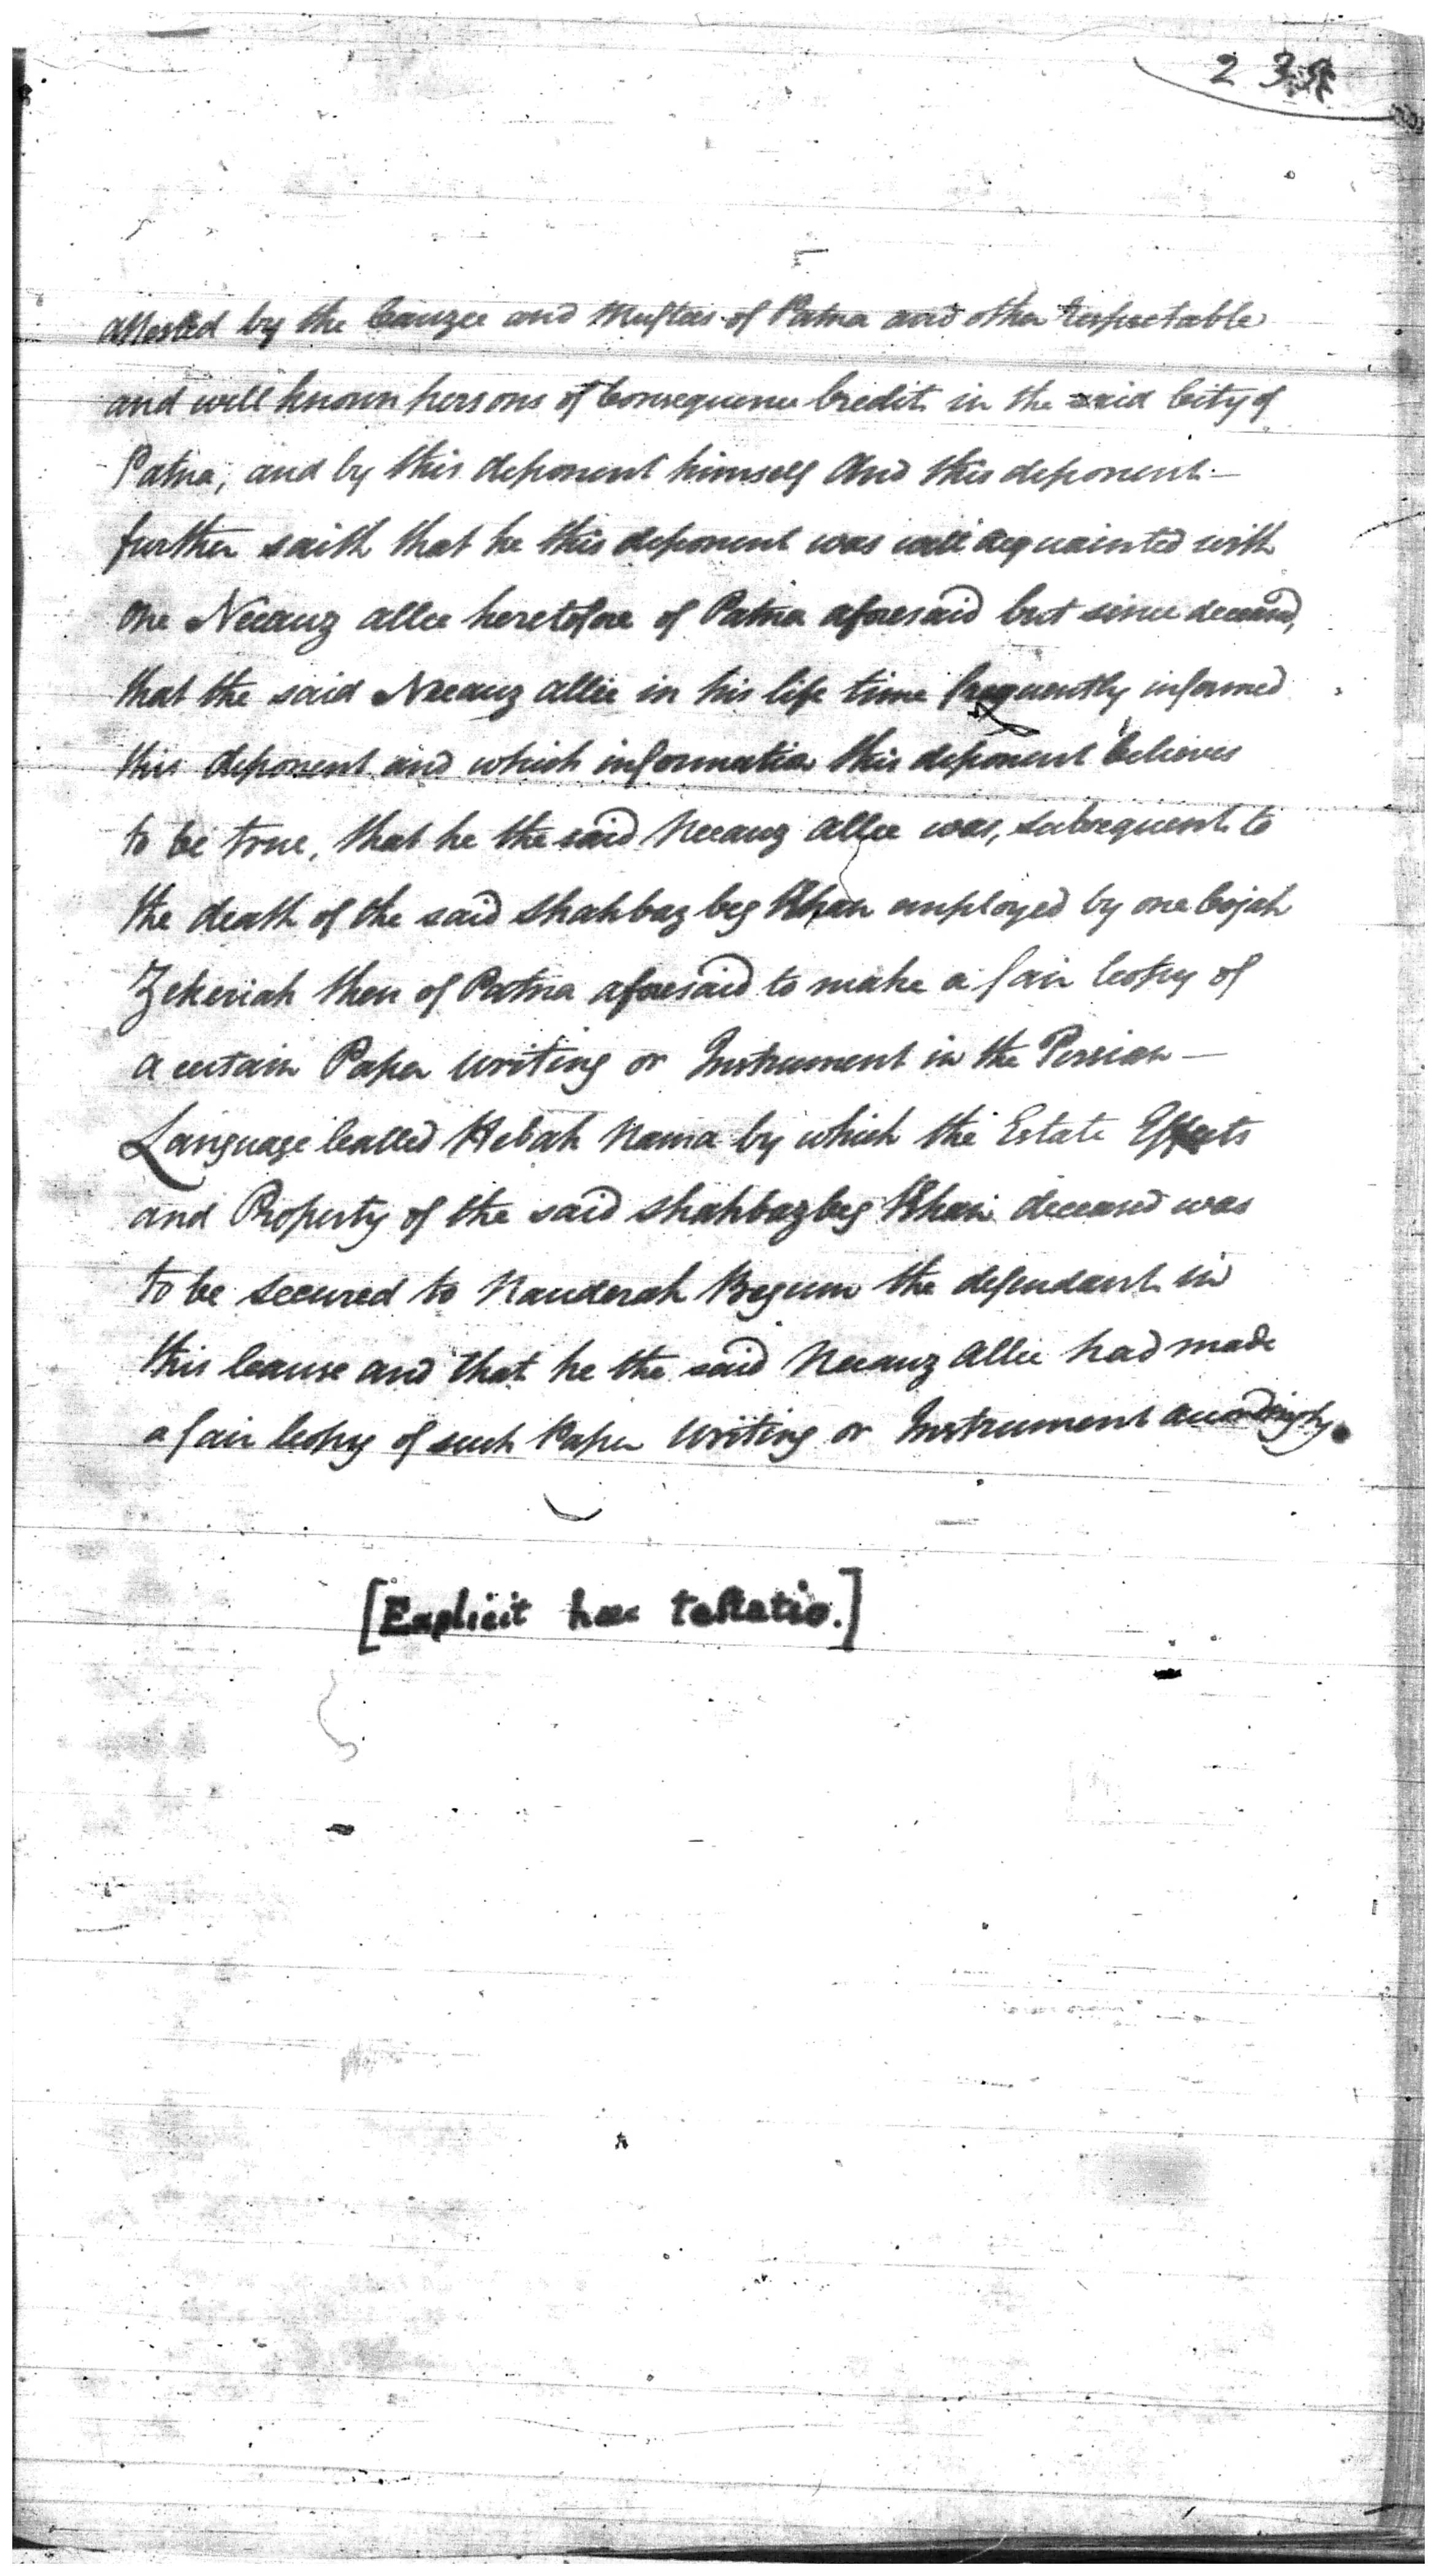 attested by the Cauzee and Muftees of Patna and other respectable
and well known persons of Consequence Credit in the said City of
Patna, and by this deponent himself And this deponent
further saith that he this deponent was well acquainted with
One Neeauz allee heretofore of Patna aforesaid but since deceased,
that the said Neeauz allee in his life time frequently informed
this deponent and which information this deponent believes
to be true, that he the said Neeauz allee was, subsequent to
the death of the said Shahbaz beg Khan employed by one Cojah
Zekeriah then of Patna aforesaid to make a fair Copy of
a certain Paper Writing or Instrument in the Persian —
Language Called Hebah Nama by which the Estate Effects
and Property of the said Shahbaz beg Khan deceased was
to be secured to Nauderah Begum the defendant in
this Cause and that he the said Neeauz Allee had made
a fair Copy of such Paper Writing or Instrument accordingly.
[Explicit hæc tellatio.]